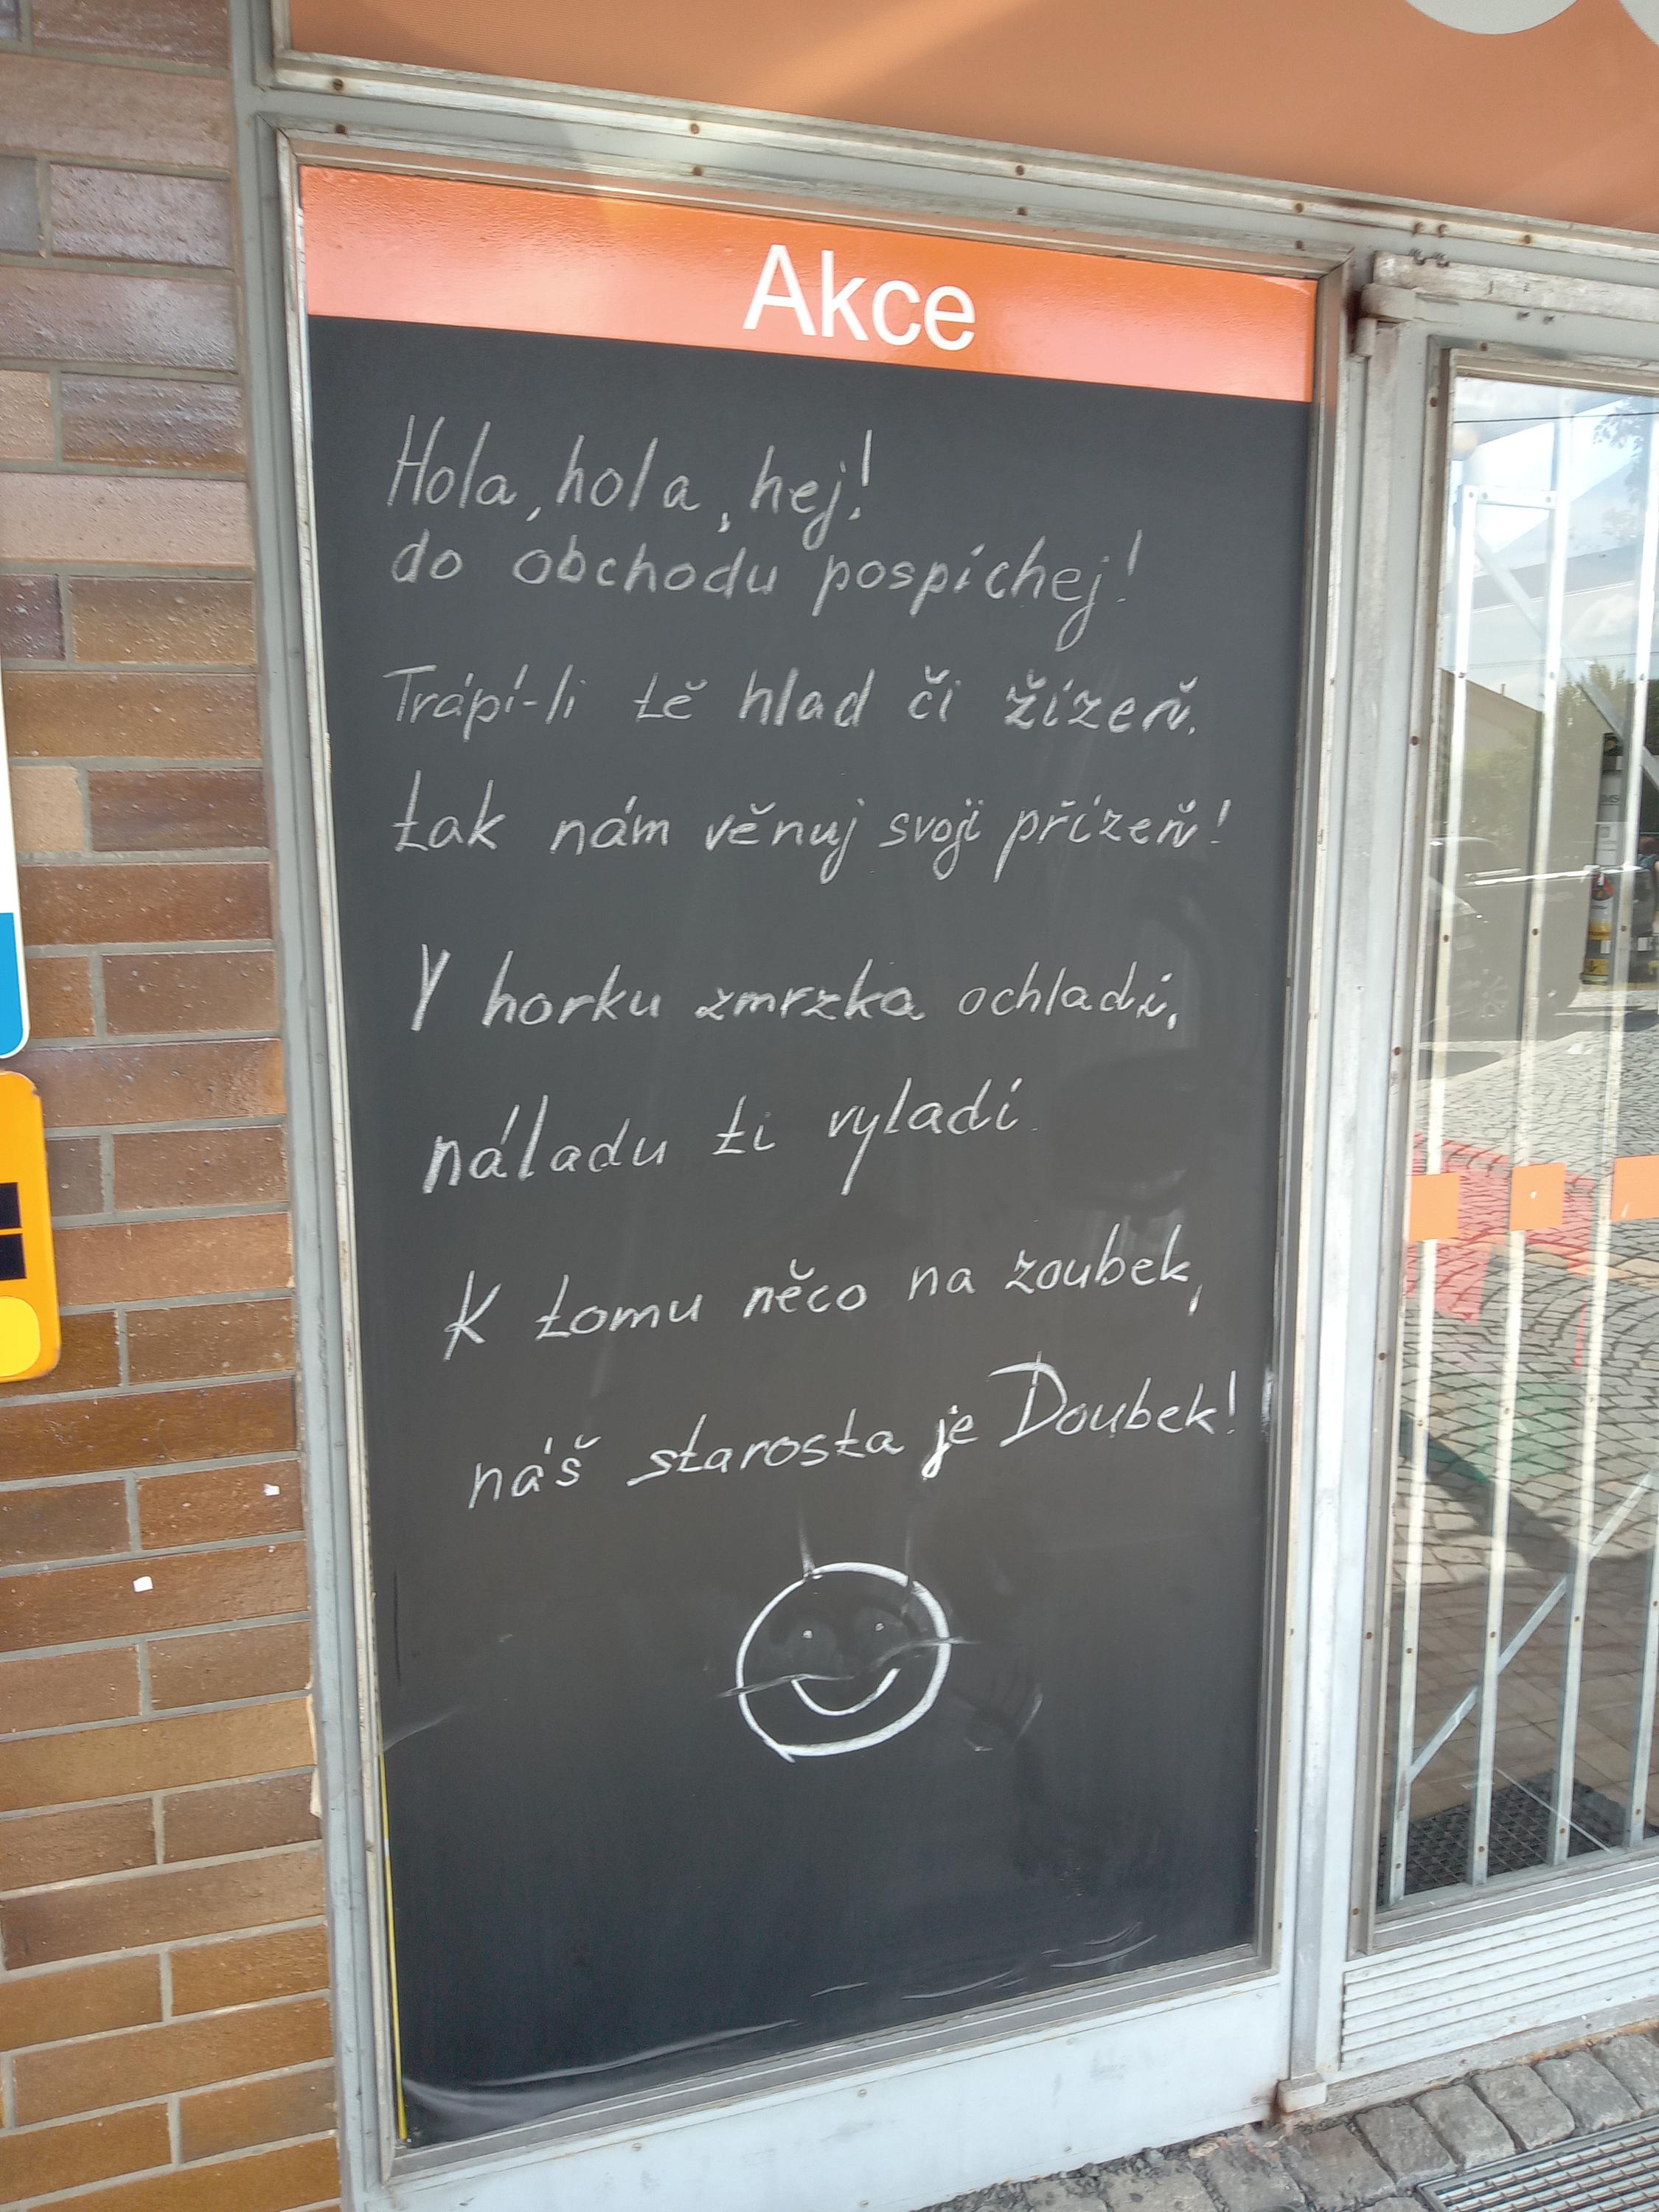 Akce
Hola, hola, hej!
do obchodu pospíchej!
Trápí-li tě hlad či žízeň,
tak nám věnuj svoji přízeň!
V horku zmrzka ochladí,
náladu ti vyladí.
K tomu něco na zoubek,
náš starosta je Doubek!